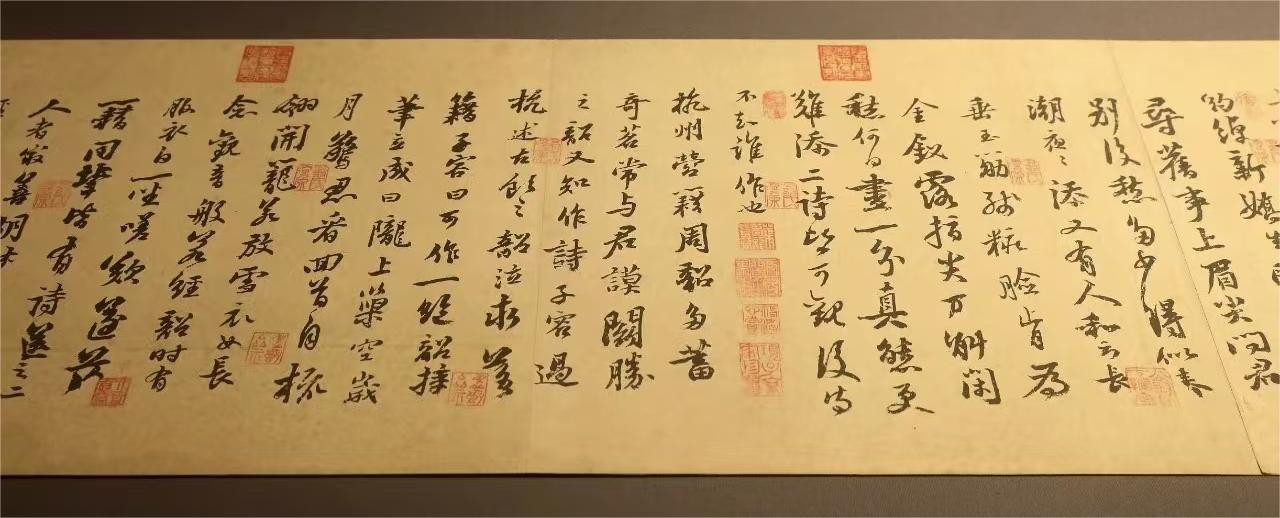 約綽新嬌生眼
尋舊事上眉尖問君
別後愁多少得似春
潮夜〻添又有人和云長
垂玉筯殘粧臉肯為
金釵露指尖万斛閑
愁何日盡一分真態更
難添二詩皆可觀後詩
不知誰作也
杭州營籍周韶多蓄
奇茗常与君謨鬬勝
之韶又知作詩子容過
杭述古飲之韶泣求落
籍子容曰可作一絕韶援
筆立成曰隴上巢空歲
月驚忍看回首自梳
翎開籠若放雪衣女長
念觀音般若經韶時有
服衣白一坐嗟歎遂落
籍同輩皆有詩送之二
人者最善胡楚